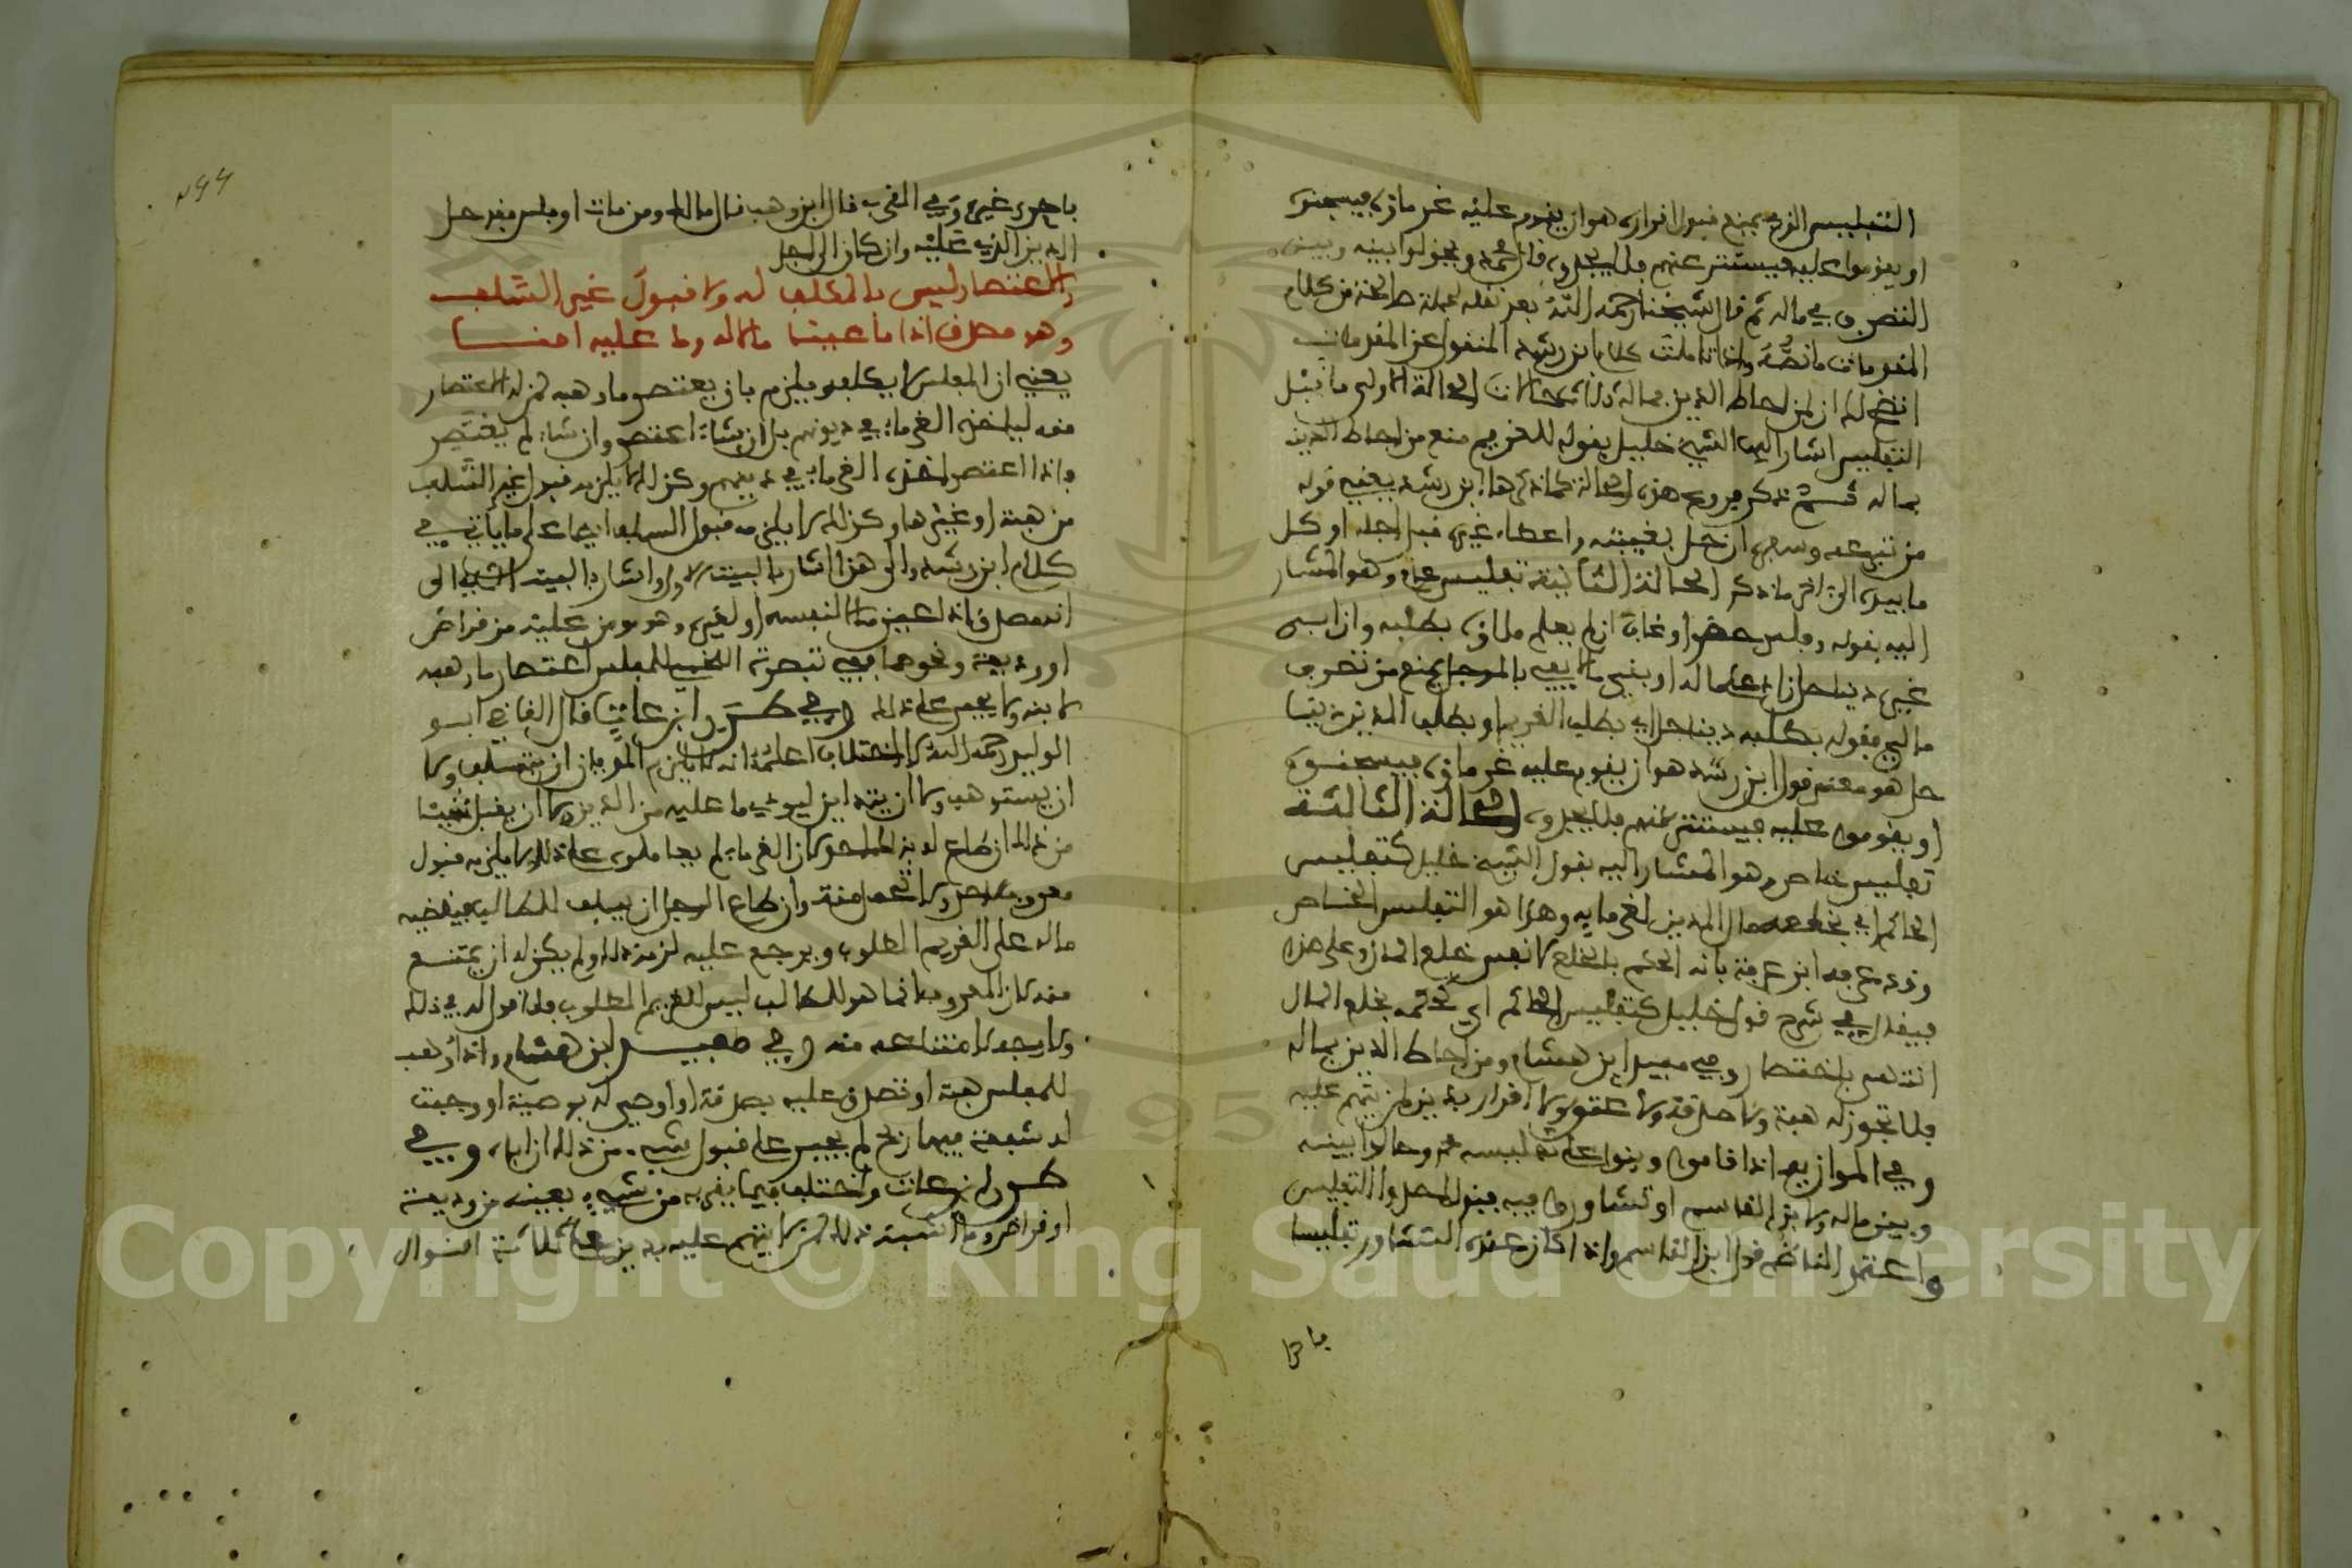 التفليس الذي يمنع قبول اقراره هو ان يقوم عليه غرماؤه فيسجنوه
او يقوموا عليه فيستتر عنهم فلا يجدوه قال محمد ويحولوا بينه وبين
التصرف في ماله ثم قال شيخنا رحمه الله بعد نقله لجملة صالحة من كلام
المقدمات ما نصه واذا تاملت كلام ابن رشد المنقول عن المقدمات
اتضح لك ان لمن احاط الدين بماله ثلاث حالات الحالة الاولى ما قبل
التفليس اشار اليها الشيخ خليل بقوله للغريم منع من احاط الدين
بماله ثم ذكر فروع هذه الحالة كما ذكرها ابن رشد يعني قوله
من تبرعه وسفره ان حل بغيبته واعطاء غيره قبل اجله او كل
ما بيده الى اخر ما ذكر الحالة الثانية تفليس عام وهو المشار
اليه بقوله وفلس حضر او غاب ان لم يعلم ملاؤه بطلبه وان ابى
غيره دينا حل زاد على ماله او بقي ما لا يفي بالموجل فمنع من تصرف
مالي فقوله بطلبه دينا حل اي بطلب الغريم او بطلب المدين دينا
حل هو معنى قول ابن رشد هو ان يقوم عليه غرماؤه فيسجنوه
او يقومون عليه فيستتر عنهم فلا يجدوه الحالة الثالثة
تفليس خاص وهو المشار اليه بقول الشيخ خليل كتفليس
الحاكم اي بخلعه مال المدين لغرمائه وهذا هو التفليس الخاص
وقد عرفه ابن عرفة بانه الحكم بالخلع لا نفس خلع المال وعلى هذا
فيقال في شرح قول خليل كتفليس الحاكم اي حكمه بخلع المال
انتهى باختصار وفي مفيد ابن هشام ومن احاط الدين بماله
فلا تجوز له هبة ولا صدقة ولا عتق ولا اقرار بدين لمن يتهم عليه
وفي الموازية اذا قاموا وبنوا على تفليسه وحالوا بينه
وبين ماله ولابن القاسم او تشاوروا فيه فنزل
واعتمد الناظم قول ابن القاسم واذا كان عنده التشاور تفليسا
فا
باحرى غيره وفي المقرب قال ابن وهب قال مالك ومن مات او فلس فقد حل
الدين الذي عليه وان كان الى اجل
والاعتصار ليس بالمكلف له ولا قبول غير السلف
وهو مصدق اذا ما عينا ماله وما عليه امنا
يعني ان المفلس لا يكلف ويلزم بان يعتصر ما وهبه لمن له الاعتصار
منه لياخذه الغرماء في ديونهم بل ان شاء اعتصر وان شاء لم يعتصر
واذا اعتصر اخذه الغرماء في دينهم وكذلك لا يلزمه قبول غير السلف
من هبة او غيرها وكذلك لا يلزمه قبول السلف ايضا على ما ياتي في
كلام ابن رشد والى هذا اشار بالبيت الاول واشار بالبيت الثاني الى
انه مصدق اذا عين مالا لنفسه او لغيره وهو مومن عليه من قراض
او وديعة ونحوهما ففي تبصرة اللخمي للمفلس اعتصار ما وهبه
لابنه ولا يجبر على ذلك وفي طرر ابن عات قال القاضي ابو
الوليد رحمه الله لا اختلاف اعلمه انه لا يلزم المديان ان يتسلف ولا
ان يستوهب ولا ان يتداين ليودي ما عليه من الدين ولا ان يقبل شيئا
من ذلك ان طاع له به كان الغرماء لم يعاملوه على ذلك ولا يلزمه قبول
معروف احد ولا تحمل منة وان طاع الرجل ان يسلف للطالب فيقضيه
ماله على الغريم المطلوب ويرجع عليه لزمه ذلك ولم يكن له ان يمتنع
منه لان المعروف انما هو للطالب ليس للغريم المطلوب فلا قول له في ذلك
ولا وجه لامتناعه منه وفي مفيد ابن هشام واذا وهب
للمفلس هبة او تصدق عليه بصدقة او اوصي له بوصية او وجبت
له شفعة فيها ربح لم يجبر على قبول شيء من ذلك ان اباه وفي
طرر ابن عات واختلف فيما يقر به من شيء بعينه من وديعة
او قراض وما اشبه ذلك لمن لا يتهم عليه بدين على ثلاثة اقوال